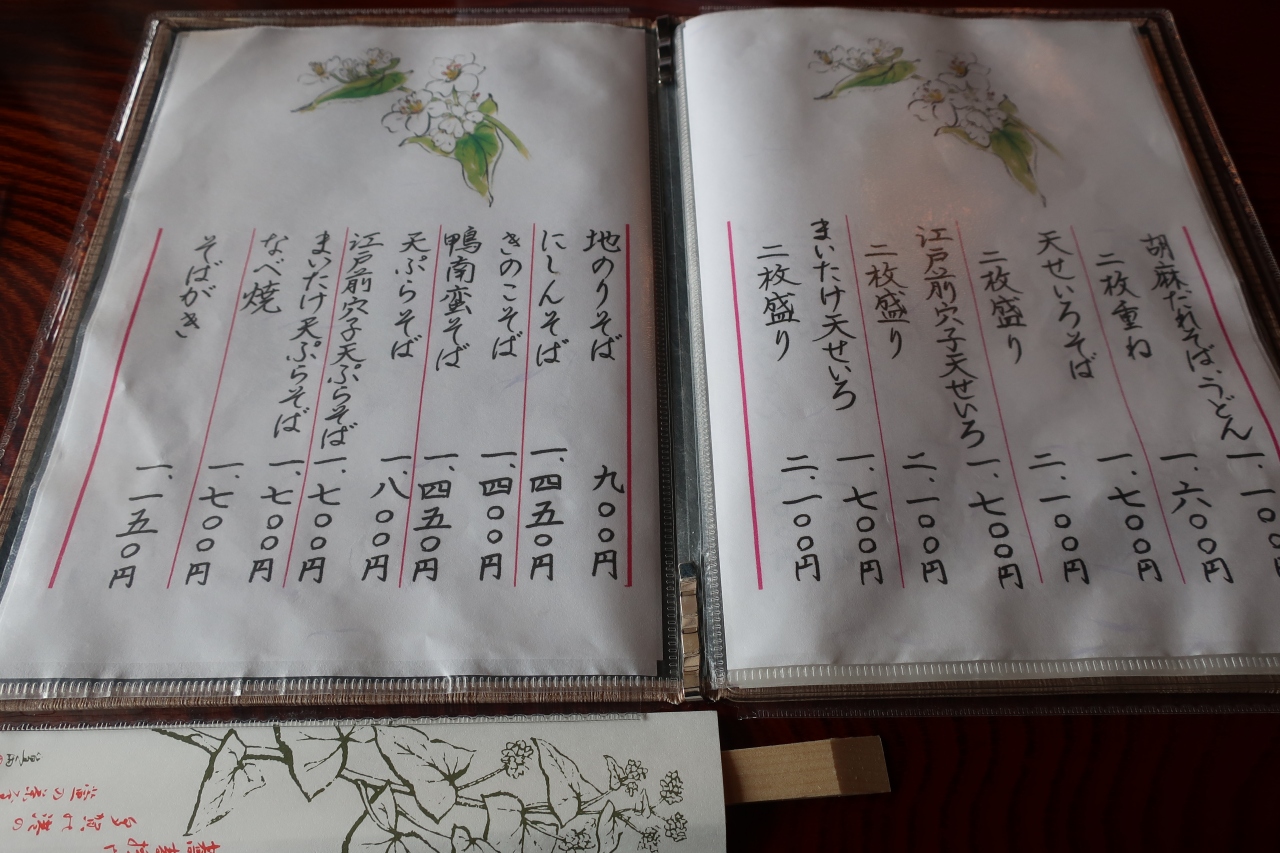 胡麻だれそば、うどん 一、一〇〇円
二枚重ね 一、六〇〇円
天せいろそば 一、七〇〇円
二枚盛り 二、一〇〇円
江戸前穴子天せいろ 一、七〇〇円
二枚盛り 二、一〇〇円
まいたけ天せいろ 一、七〇〇円
二枚盛り 二、一〇〇円
地のりそば 九〇〇円
にしんそば 一、四五〇円
きのこそば 一、四〇〇円
鴨南蛮そば 一、四五〇円
天ぷらそば 一、八〇〇円
江戸前穴子天ぷらそば 一、七〇〇円
まいたけ天ぷらそば 一、七〇〇円
なべ焼 一、七〇〇円
そばがき 一、一五〇円